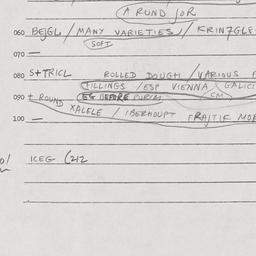 A RUND JOR
060 BEJGL / MANY VARIETIES / KRINZGLE
SOFT
070 —
080 S+TRICL ROLLED DOUGH / VARIOUS
FILLINGS / ESP VIENNA GALICI
090 + ROUND EG BEFORE PURIM CM
XALELE / IBERHOUPT FRAJTIK MOR
100 —
KEG (212